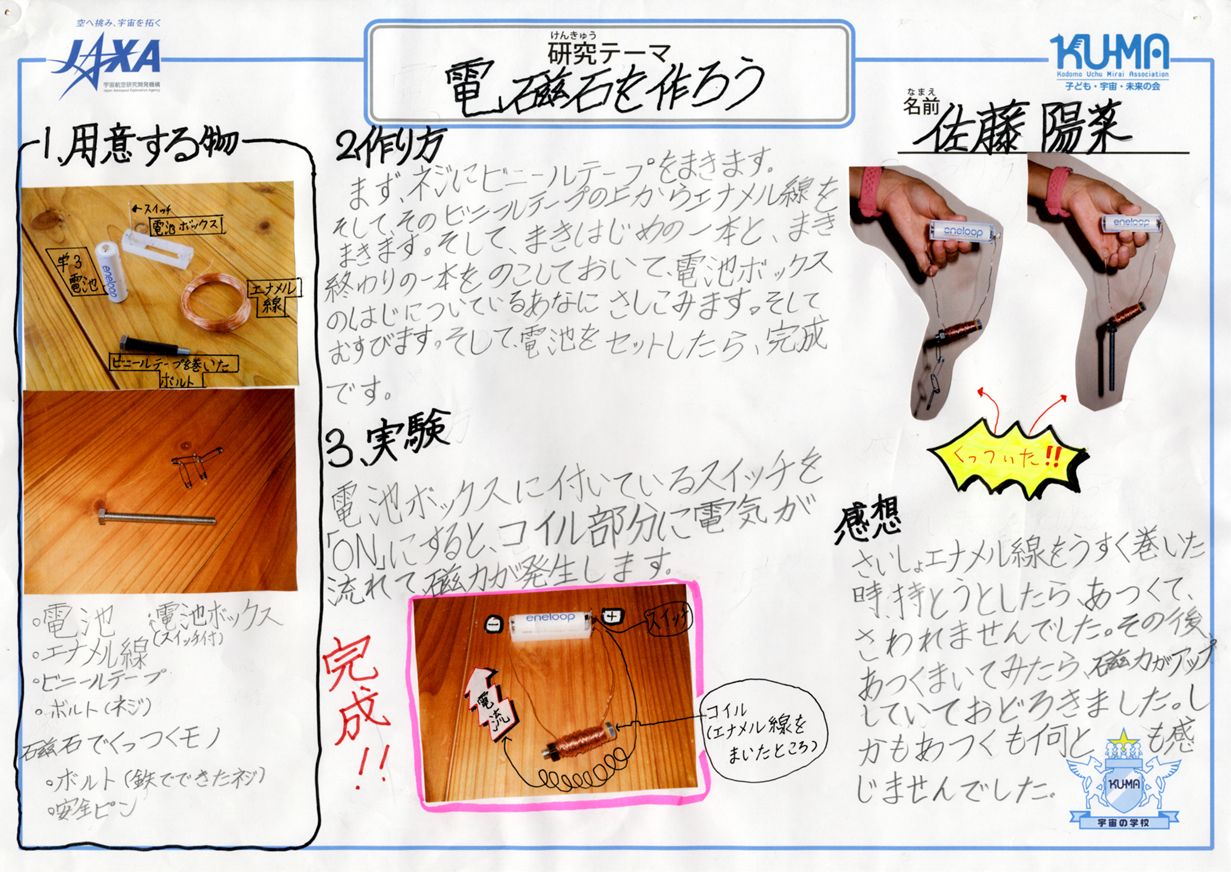 空へ挑み、宇宙を拓く
JAXA
宇宙航空研究開発機構
Japan Aerospace Exploration Agency
けんきゅう
研究テーマ
電磁石を作ろう
KU-MA
Kodomo Uchu Mirai Association
子ども・宇宙・未来の会
なまえ
名前
佐藤 陽菜
1、用意する物
スイッチ
電池ボックス
単3
電池
eneloop
エナメル
線
ビニールテープを巻いた
ボルト
・電池
・電池ボックス
(スイッチ付)
・エナメル線
・ビニールテープ
・ボルト(ネジ)
磁石でくっつくモノ
・ボルト(鉄でできたネジ)
・安全ピン
2、作り方
まず、ネジにビニールテープをまきます。
そして、そのビニールテープの上からエナメル線を
まきます。そして、まきはじめの一本と、まき
終わりの一本をのこしておいて、電池ボックス
のはじについているあなにさしこみます。そして
むすびます。そして、電池をセットしたら、完成
です。
3、実験
電池ボックスに付いているスイッチを
「ON」にすると、コイル部分に電気が
流れて磁力が発生します。
完成!!
eneloop
−
+
スイッチ
電流
コイル
(エナメル線を
まいたところ)
eneloop
eneloop
くっついた!!
感想
さいしょエナメル線をうすく巻いた
時、持とうとしたら、あつくて、
さわれませんでした。その後、
あつくまいてみたら、磁力がアップ
していておどろきました。し
かもあつくも何とも感
じませんでした。
KU-MA
宇宙の学校